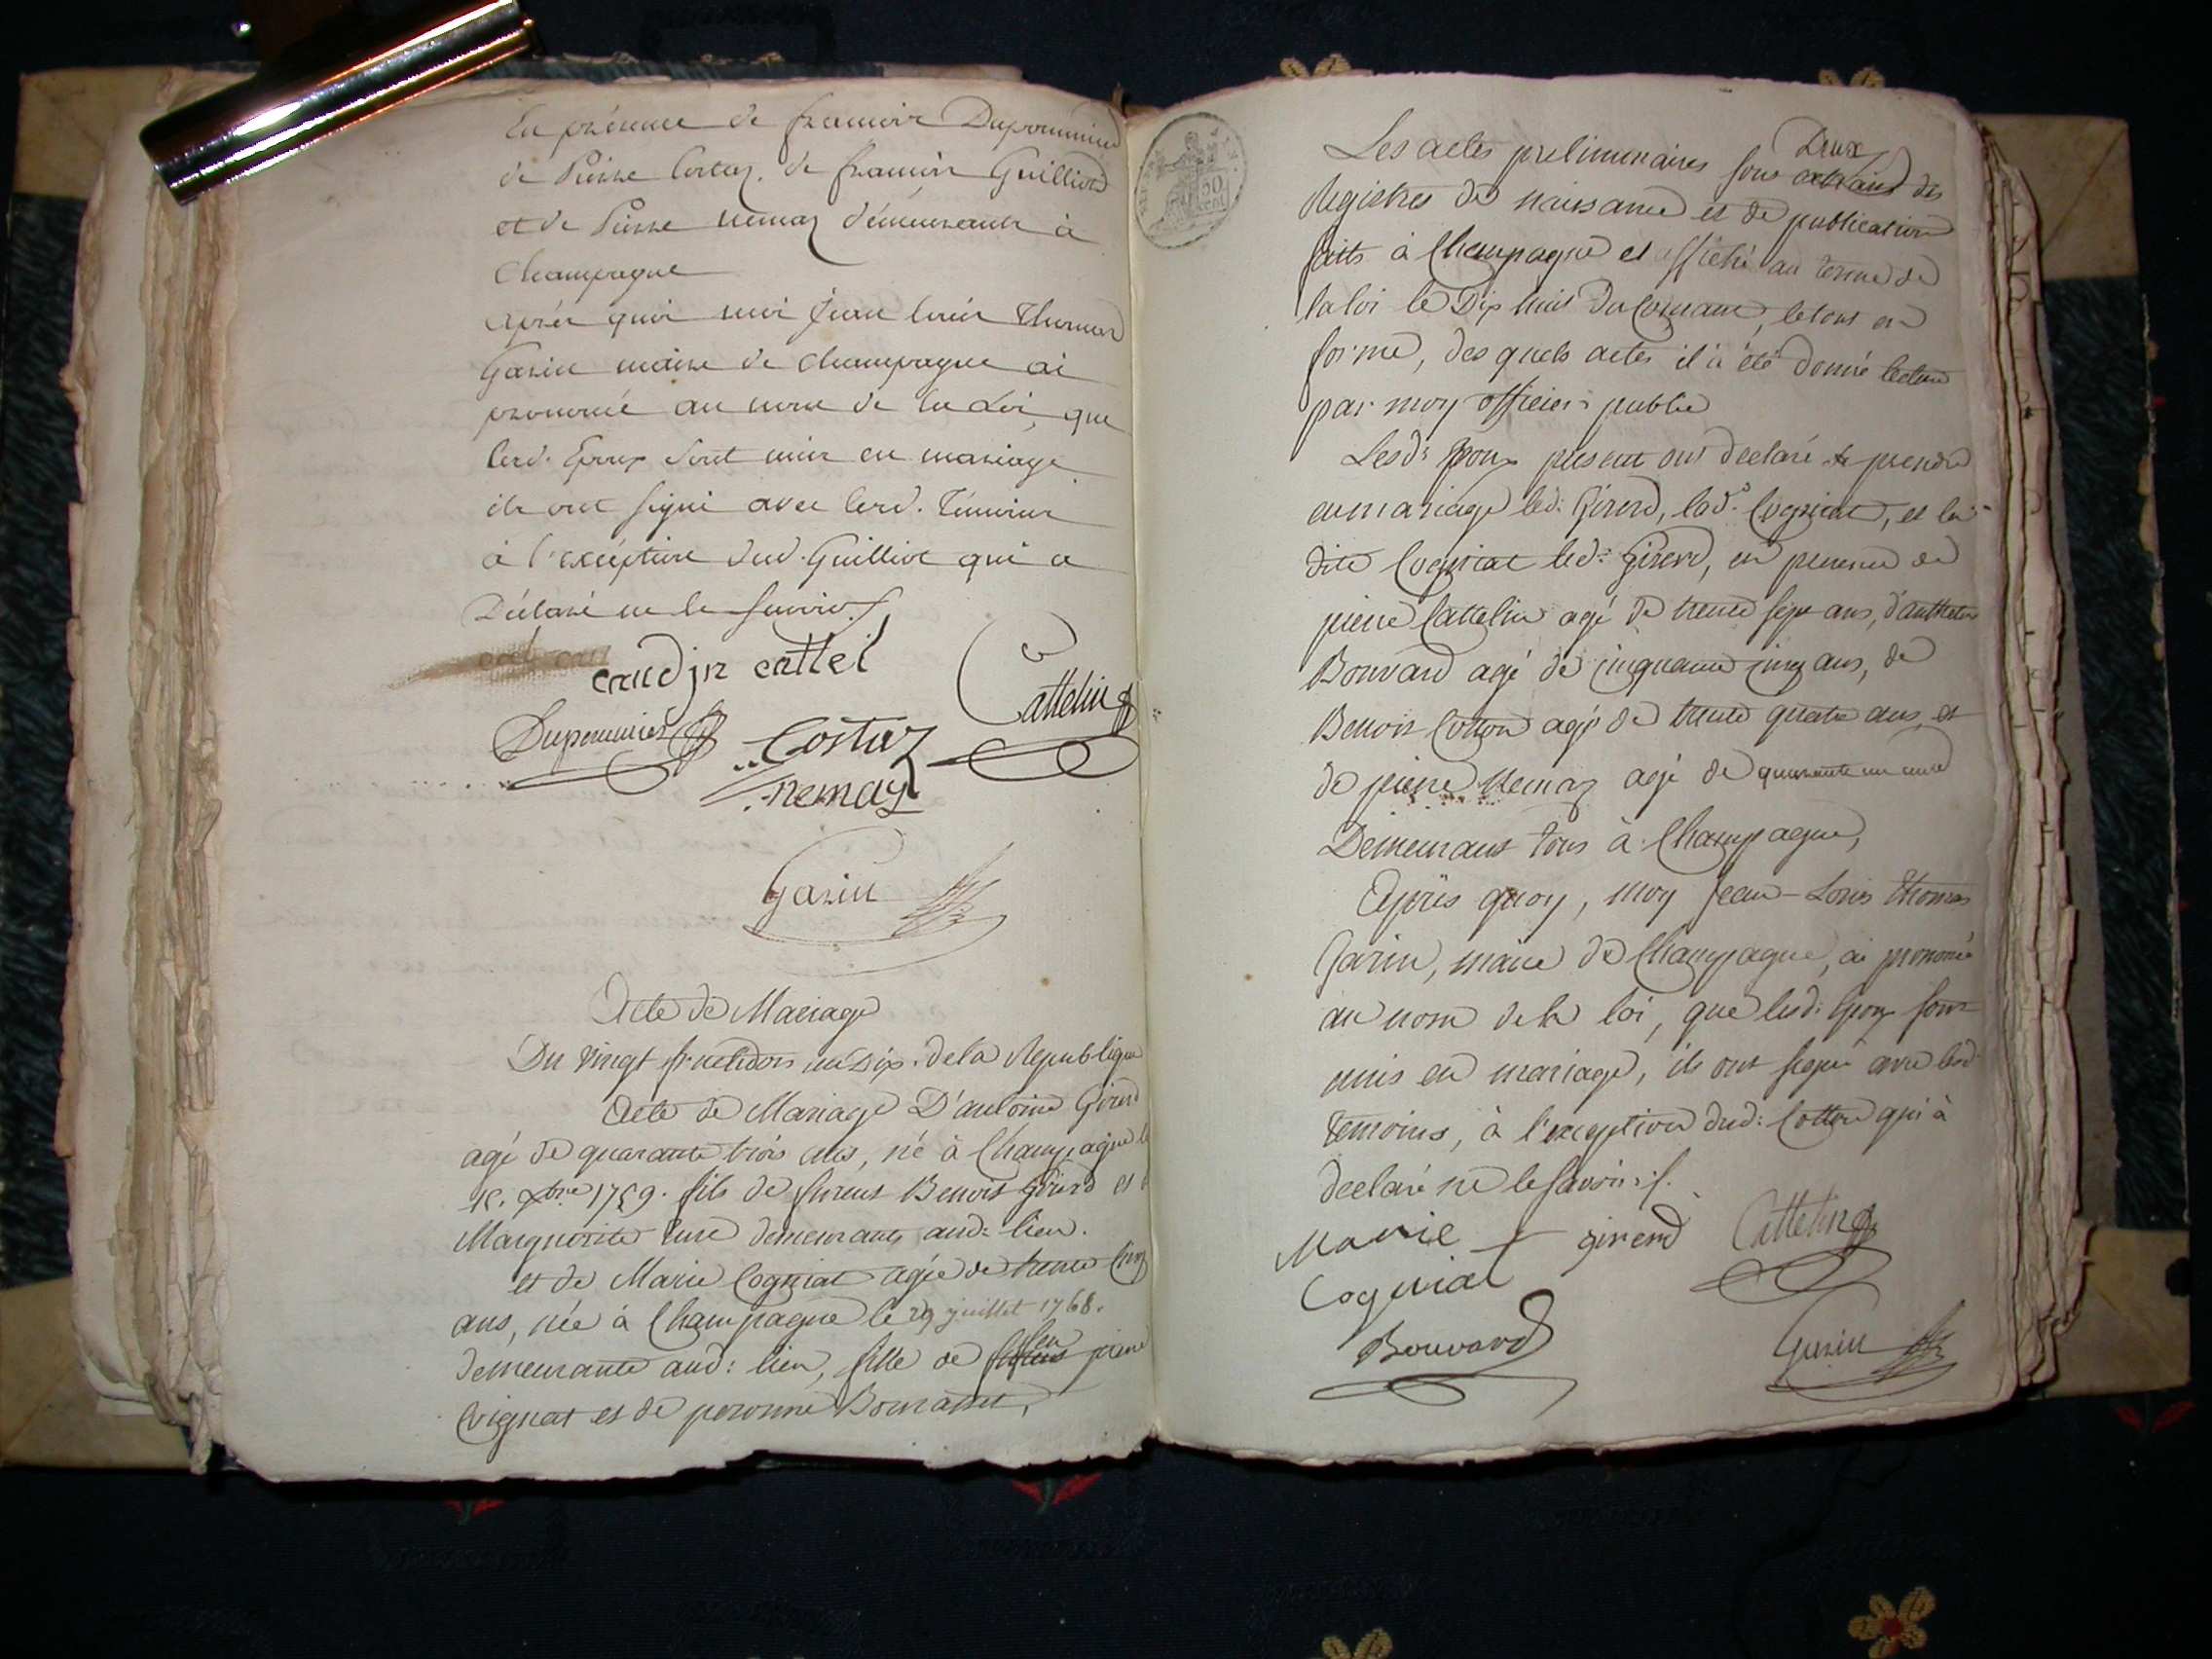 En présence de francois Dupommier
de Pierre Costaz, de francois Guilliot
et de Pierre nemoz démeurants à
Champagne
après quoi moi Jean louis thomas
Garin maire de champagne ai
prononcé au nom de la Loi, que
lesd. Epoux sont unis en mariage
ils ont signé avec lesd. témoins
à l'exception dud. Guilliot qui a
Déclaré ne le savoir./.
caudjn cattel
Cattelin
Dupommier Costaz
nemoz
Garin
Acte de Mariage
Du vingt fructidor an Dix. de la Republique
Acte de Mariage D'antoine Girerd
agé de quarante trois ans, né à Champagne le
15. Xbre 1759. fils de furent Benoit Girerd et de
Marguerite demeurants aud: lieu.
et de Marie Cogniat agée de trente cinq
ans, née à Champagne le 29 juillet 1768.
demeurante aud: lieu, fille de feu pierre
Cogniat et de peronne
50
Les actes preliminaires sont Deux extraits des
Registres de naissance et de publication
faits à Champagne et affiché au terme de
la loi le Dix huit du Courant, le tout en
forme, des quels actes il à été donné lecture
par moy officier public
Lesd: Epoux présent ont declaré prendre
en mariage led: Girerd, lad. Cogniat, et la
dite Cogniat led: Girerd, en presence de
pierre Cattelin agé de trente sept ans, d'anthelme
Bouvard agé de cinquante cinq ans, de
Benoit Cotton agé de trente quatre ans, et
de pierre Nemoz agé de quarante un ans
Demeurans tous à Champagne,
Après quoy, moy Jean-Louis thomas
Garin, maire de Champagne, ai prononcé
au nom de la loi, que lesd: Epoux sont
unis en mariage, ils ont signé avec lesd
temoins, à l'exception dud: Cotton qui à
declaré ne le savoir./.
Marie girerd Cattelin
Cogniat
Bouvard Garin